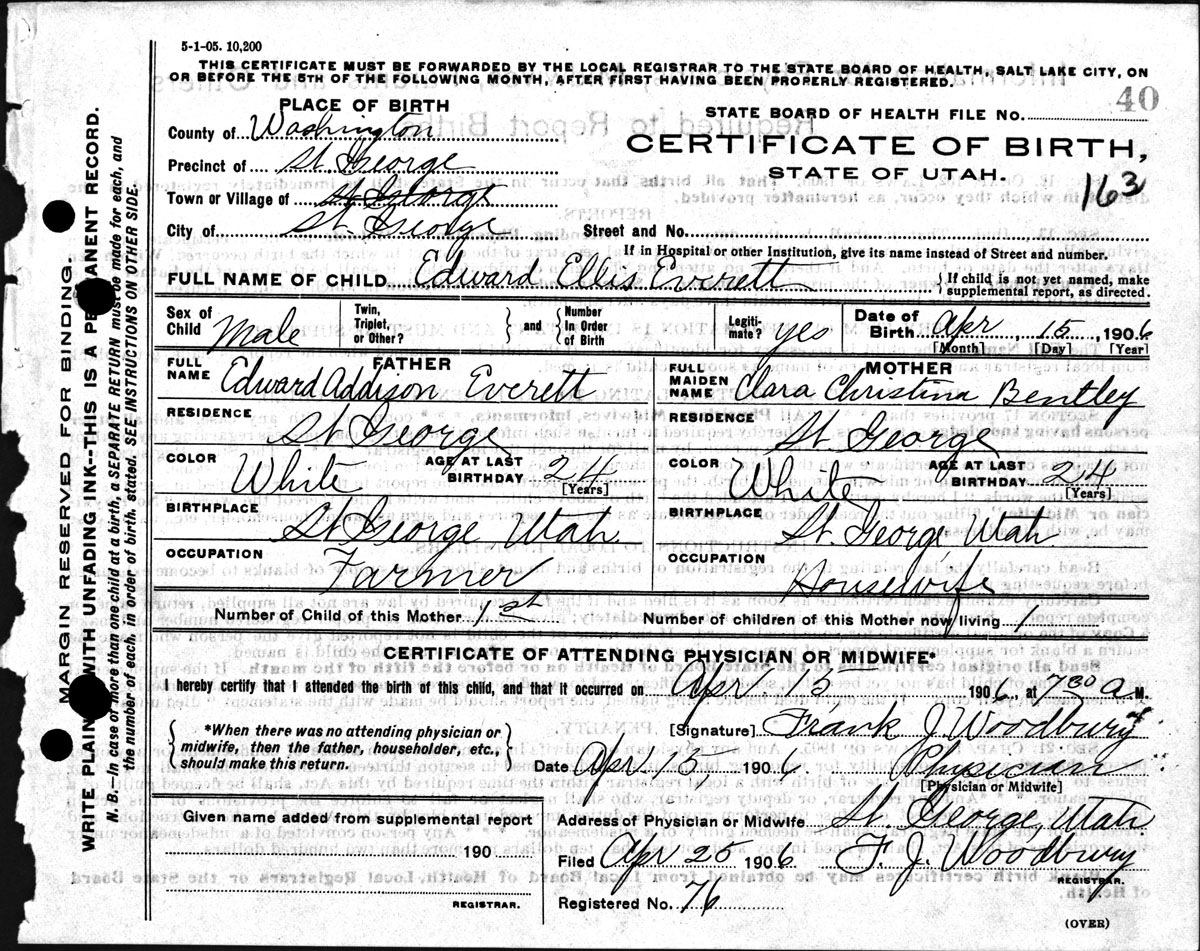 5-1-05. 10,200
THIS CERTIFICATE MUST BE FORWARDED BY THE LOCAL REGISTRAR TO THE STATE BOARD OF HEALTH, SALT LAKE CITY, ON
OR BEFORE THE 5TH OF THE FOLLOWING MONTH, AFTER FIRST HAVING BEEN PROPERLY REGISTERED.
40
PLACE OF BIRTH
STATE BOARD OF HEALTH FILE NO.
County of Washington
CERTIFICATE OF BIRTH,
Precinct of St George
STATE OF UTAH.
163
Town or Village of St George
City of St George
Street and No.
If in Hospital or other Institution, give its name instead of Street and number.
FULL NAME OF CHILD Edward Ellis Everett {If child is not yet named, make supplemental report, as directed.
Sex of Child Male
Twin, Triplet, or Other?
} and {
Number In Order of Birth
Legiti-mate? yes
Date of Birth Apr 15, 1906
[Month] [Day] [Year]
FATHER
FULL NAME Edward Addison Everett
MOTHER
FULL MAIDEN NAME Clara Christina Bentley
RESIDENCE St George
RESIDENCE St George
COLOR White AGE AT LAST BIRTHDAY 24 [Years]
COLOR White AGE AT LAST BIRTHDAY 24 [Years]
BIRTHPLACE St George Utah
BIRTHPLACE St George, Utah
OCCUPATION Farmer
OCCUPATION Housewife
Number of Child of this Mother 1st
Number of children of this Mother now living 1
CERTIFICATE OF ATTENDING PHYSICIAN OR MIDWIFE*
I hereby certify that I attended the birth of this child, and that it occurred on Apr. 15 1906, at 7 30 a M.
{*When there was no attending physician or
midwife, then the father, householder, etc.,
should make this return.}
[Signature] Frank J Woodbury
Date Apr 15, 1906 Physician
[Physician or Midwife]
Given name added from supplemental report
190
REGISTRAR.
Address of Physician or Midwife St. George, Utah
Filed Apr 25 1906 F. J. Woodbury
REGISTRAR.
Registered No. 76
(OVER)
MARGIN RESERVED FOR BINDING.
WRITE PLAINLY WITH UNFADING INK--THIS IS A PERMANENT RECORD.
N. B.—In case of more than one child at a birth, a SEPARATE RETURN must be made for each, and
the number of each, in order of birth, stated. SEE INSTRUCTIONS ON OTHER SIDE.